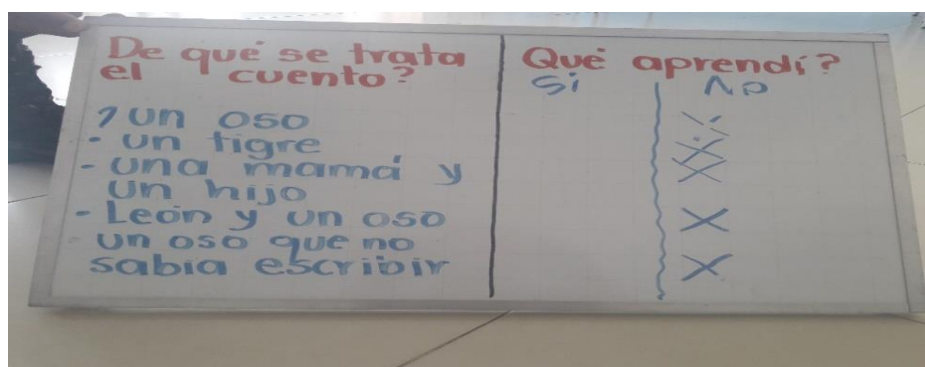 De qué se trata
el cuento?
un oso
- un tigre
- una mamá y
un hijo
- León y un oso
- un oso que no
sabía escribir
Qué aprendí?
Si No
X
X
X
X